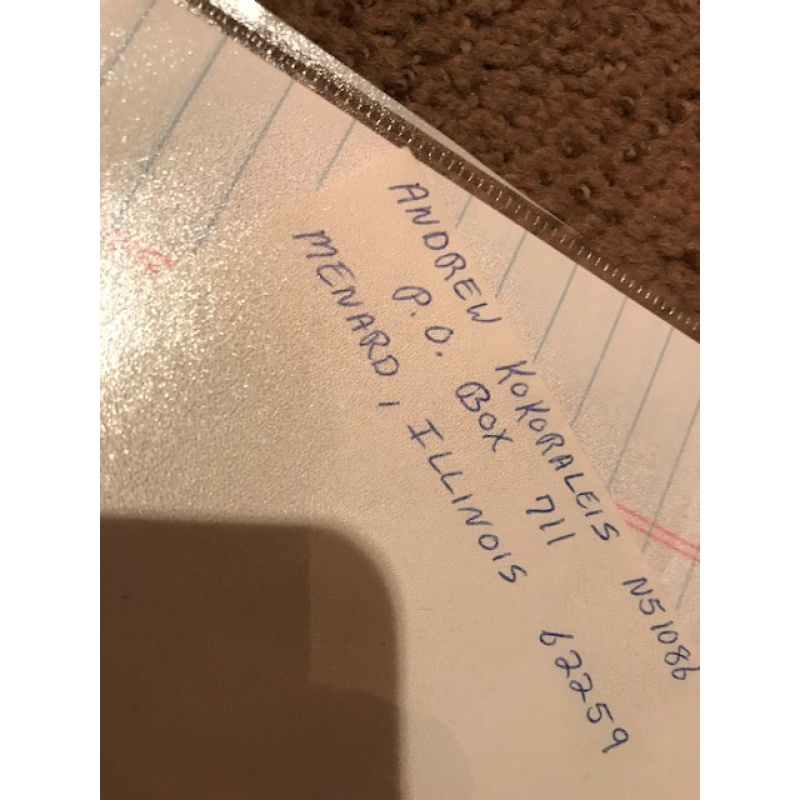 ANDREW KOKORALEIS N51086
P.O. BOX 711
MENARD, ILLINOIS 62259